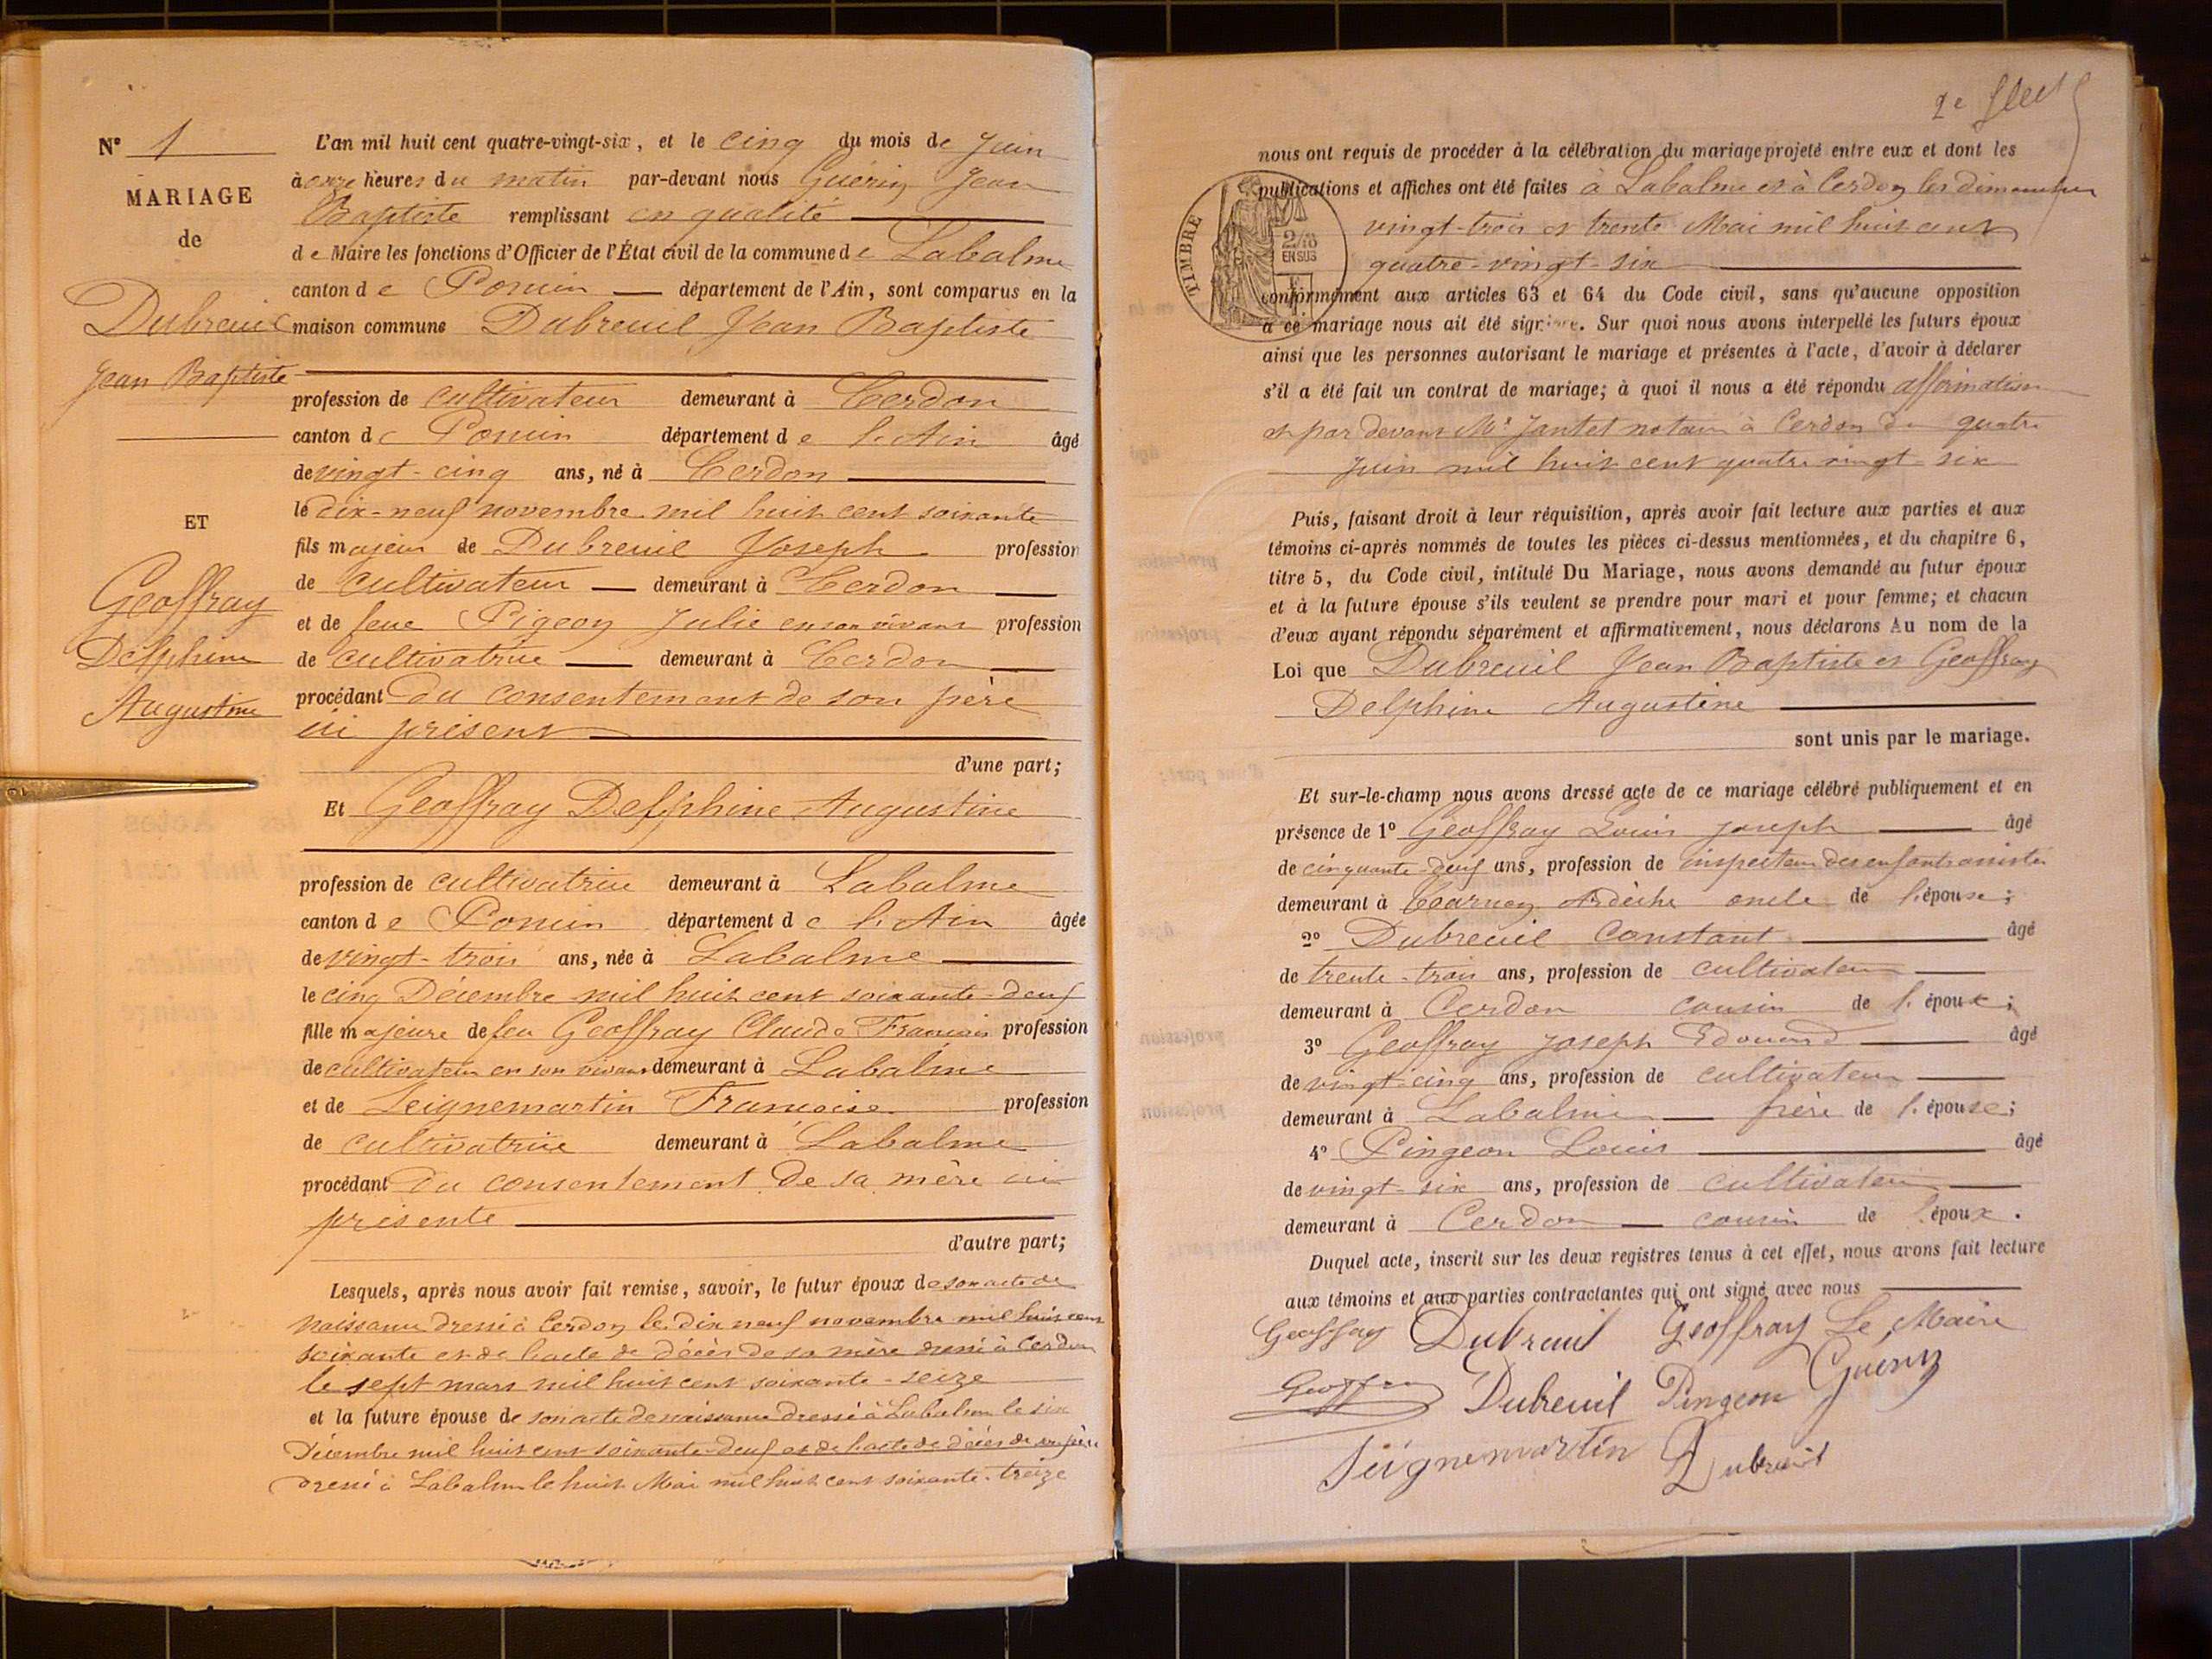 N° 1
MARIAGE
de
Dubreuil
Jean Baptiste
ET
Geoffray
Delphine
Augustine
L'an mil huit cent quatre-vingt-six, et le cinq du mois de Juin
à onze heures du matin par-devant nous Guérin Jean
Baptiste remplissant en qualité
de Maire les fonctions d'Officier de l'État civil de la commune de Labalme
canton de Poncin département de l'Ain, sont comparus en la
maison commune Dubreuil Jean Baptiste
profession de cultivateur demeurant à Cerdon
canton de Poncin département de l'Ain âgé
de vingt-cinq ans, né à Cerdon
le dix-neuf novembre mil huit cent soixante
fils majeur de Dubreuil Joseph profession
de cultivateur demeurant à Cerdon
et de feue Pigeon Julie en son vivant profession
de cultivatrice demeurant à Cerdon
procédant du consentement de son père
ici présent
d'une part;
Et Geoffray Delphine Augustine
profession de cultivatrice demeurant à Labalme
canton de Poncin département de l'Ain âgée
de vingt-trois ans, née à Labalme
le cinq Décembre mil huit cent soixante-deux
fille majeure de feu Geoffray Claude François profession
de cultivateur en son vivant demeurant à Labalme
et de Seignemartin Françoise profession
de cultivatrice demeurant à Labalme
procédant du consentement de sa mère ici
présente
d'autre part;
Lesquels, après nous avoir fait remise, savoir, le futur époux de son acte de
naissance dressé à Cerdon le dix neuf novembre mil huit cent
soixante et de l'acte de décès de sa mère dressé à Cerdon
le sept mars mil huit cent soixante-seize
et la future épouse de son acte de naissance dressé à Labalme le six
Décembre mil huit cent soixante-deux et de l'acte de décès de son père
dressé à Labalme le huit Mai mil huit cent soixante-treize
2e
nous ont requis de procéder à la célébration du mariage projeté entre eux et dont les
publications et affiches ont été faites à Labalme et à Cerdon les dimanches
vingt-trois et trente Mai mil huit cent
quatre-vingt-six
TIMBRE
2/10
EN SUS
conformément aux articles 63 et 64 du Code civil, sans qu'aucune opposition
à ce mariage nous ait été signifiée. Sur quoi nous avons interpellé les futurs époux
ainsi que les personnes autorisant le mariage et présentes à l'acte, d'avoir à déclarer
s'il a été fait un contrat de mariage; à quoi il nous a été répondu
et par devant Me Jantet notaire à Cerdon du quatre
Juin mil huit cent quatre vingt-six
Puis, faisant droit à leur réquisition, après avoir fait lecture aux parties et aux
témoins ci-après nommés de toutes les pièces ci-dessus mentionnées, et du chapitre 6,
titre 5, du Code civil, intitulé Du Mariage, nous avons demandé au futur époux
et à la future épouse s'ils veulent se prendre pour mari et pour femme; et chacun
d'eux ayant répondu séparément et affirmativement, nous déclarons Au nom de la
Loi que Dubreuil Jean Baptiste et Geoffray
Delphine Augustine
sont unis par le mariage.
Et sur-le-champ nous avons dressé acte de ce mariage célébré publiquement et en
présence de 1° Geoffray Louis Joseph âgé
de cinquante-deux ans, profession de inspecteur des enfants assistés
demeurant à Ardèche oncle de l'épouse;
2° Dubreuil Constant âgé
de trente-trois ans, profession de cultivateur
demeurant à Cerdon cousin de l'époux;
3° Geoffray Joseph Edouard âgé
de vingt-cinq ans, profession de cultivateur
demeurant à Labalme frère de l'épouse;
4° Pingeon Louis âgé
de vingt-six ans, profession de cultivateur
demeurant à Cerdon cousin de l'époux.
Duquel acte, inscrit sur les deux registres tenus à cet effet, nous avons fait lecture
aux témoins et aux parties contractantes qui ont signé avec nous
Geoffray Dubreuil Geoffray Le Maire
Geoffray Dubreuil Pingeon Guérin
Seignemartin Dubreuil